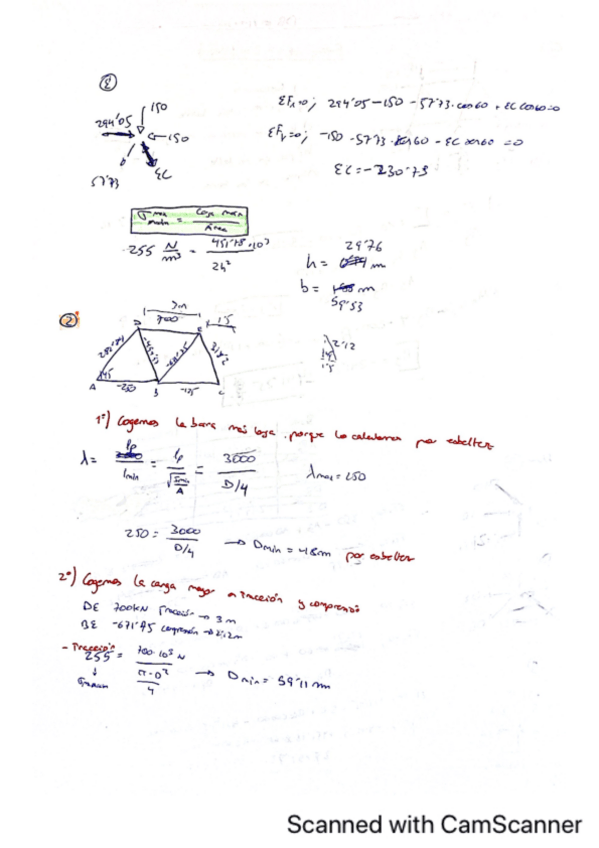 E
150
294'05
150
57'73
EC
ΣFx=0; 294'05-150-57'73·cos60+EC cos60=0
ΣFy=0; -150-57'73·cos60-EC cos60=0
EC=-230'73
σ max = Carga max / Area
255 N/m² = 451'75·10³ / 2h²
29'76
h= m
b= m
59'53
②
3m
700
1'5
A
B
C
45
-250
2'12
1'5
1º) Cogemos la barra más larga, porque lo calculamos por esbeltez
λ= lp / imin = lp / √(Imin/A) = 3000 / D/4
λmax=250
250= 3000 / D/4 → Dmin=48mm por esbeltez
2º) Cogemos la carga mayor a tracción y compresión
DE 700kN tracción → 3m
BE -671'75 compresión → 2'12m
- Tracción
255 = 700·10³ N / π·D²/4 → Dmin= 59'11 mm
Scanned with CamScanner